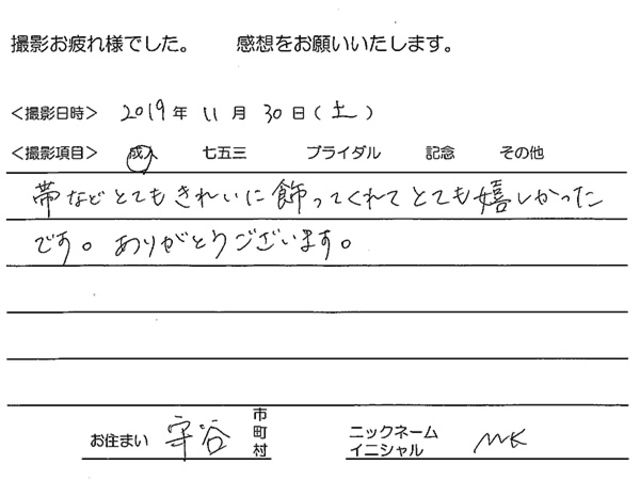 撮影お疲れ様でした。　感想をお願いいたします。
＜撮影日時＞ 2019年 11月 30日(土)
＜撮影項目＞ 成人 七五三 ブライダル 記念 その他
帯などとてもきれいに飾ってくれてとても嬉しかった
です。ありがとうございます。
お住まい 守谷 市町村 ニックネーム イニシャル MK